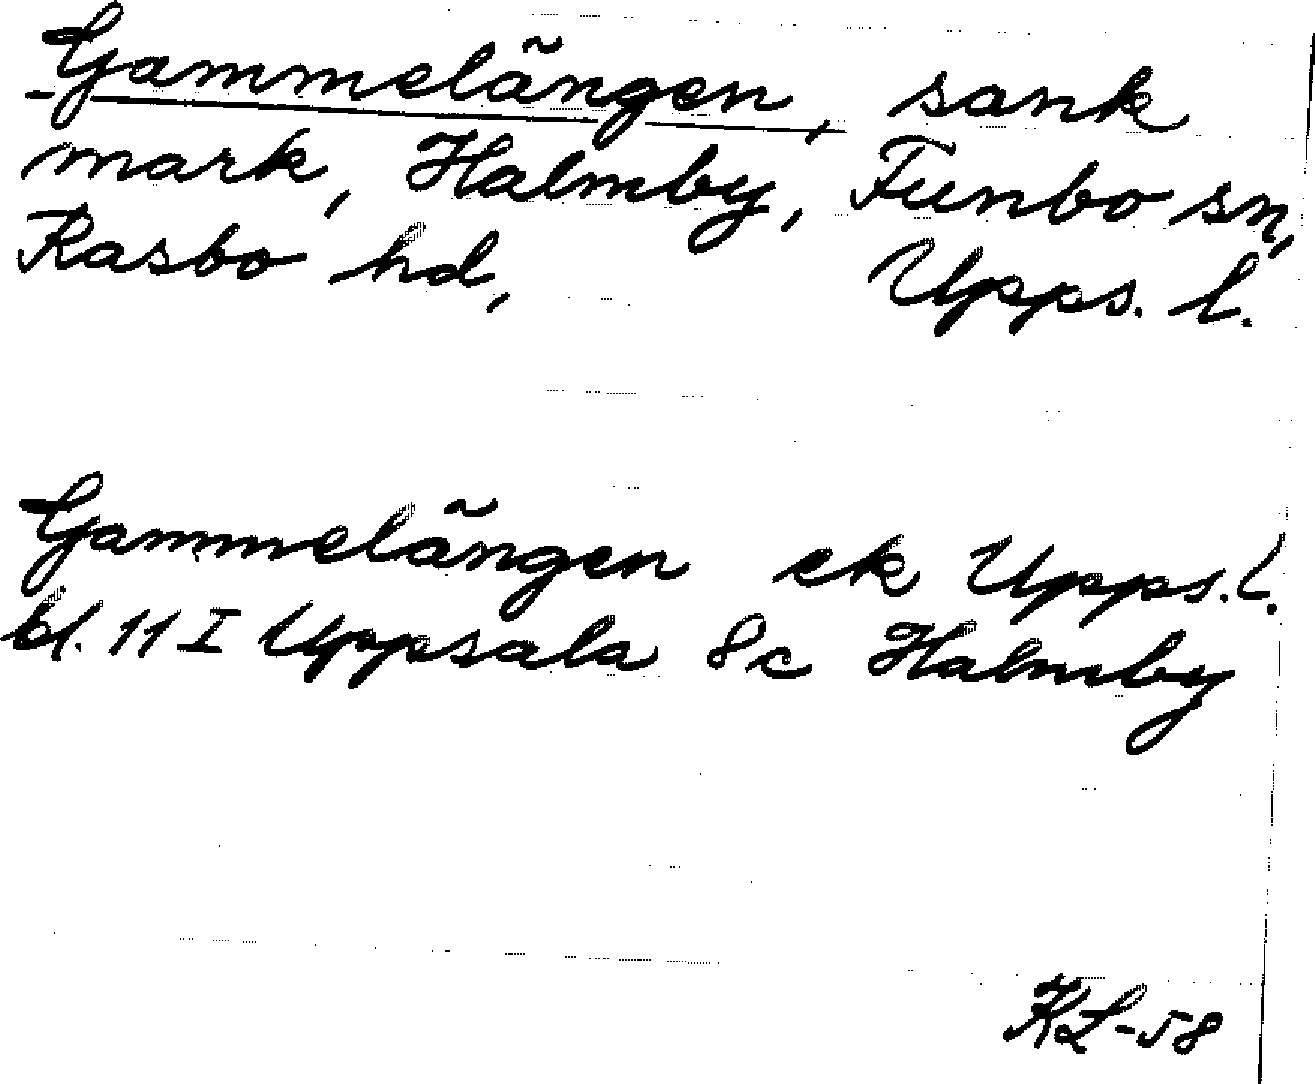 Gammelängen, sank
mark, Halmby, Funbo sn,
Rasbo hd, Upps. l.
Gammelängen ek Upps. l.
bl. 11 I Uppsala 8c Halmby
KL-58